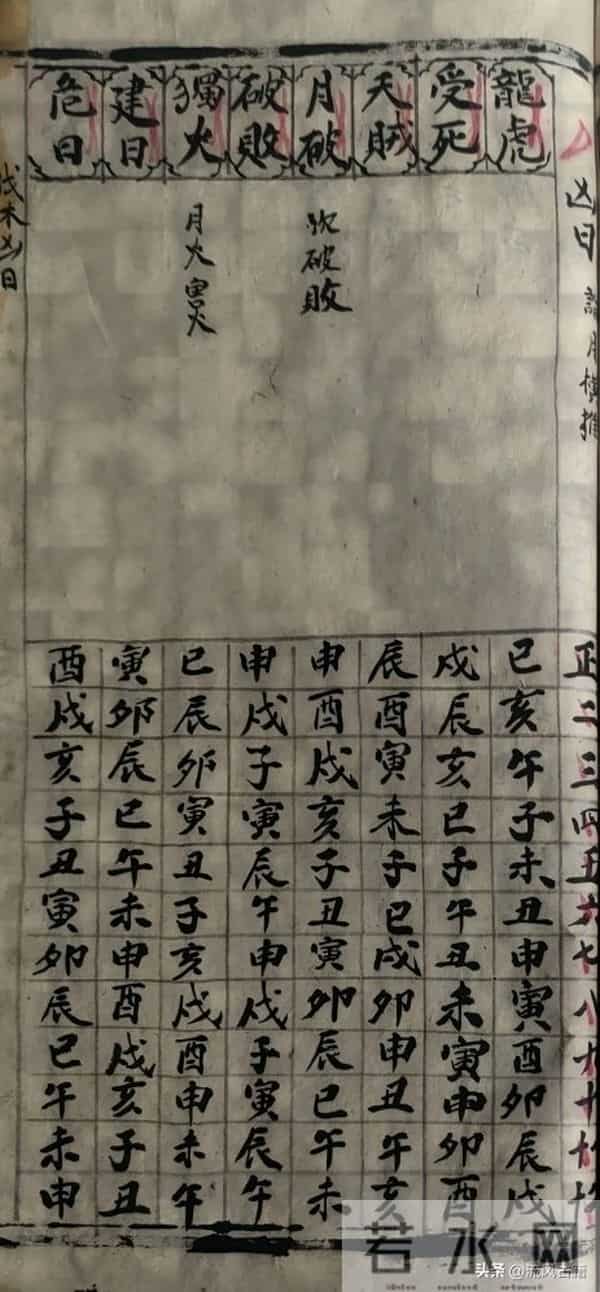 凶日 月横推
正二三四五六七八九十
龍虎
巳亥午子未丑申寅酉卯辰戌
受死
戌辰亥巳子午丑未寅申卯酉
天賊
辰酉寅未子巳戌卯申丑午亥
月破
破敗
申酉戌亥子丑寅卯辰巳午未
破敗
申戌子寅辰午申戌子寅辰午
獨火
月火害火
巳辰卯寅丑子亥戌酉申未午
建日
寅卯辰巳午未申酉戌亥子丑
危日
酉戌亥子丑寅卯辰巳午未申
伐木凶日
若水网
头条